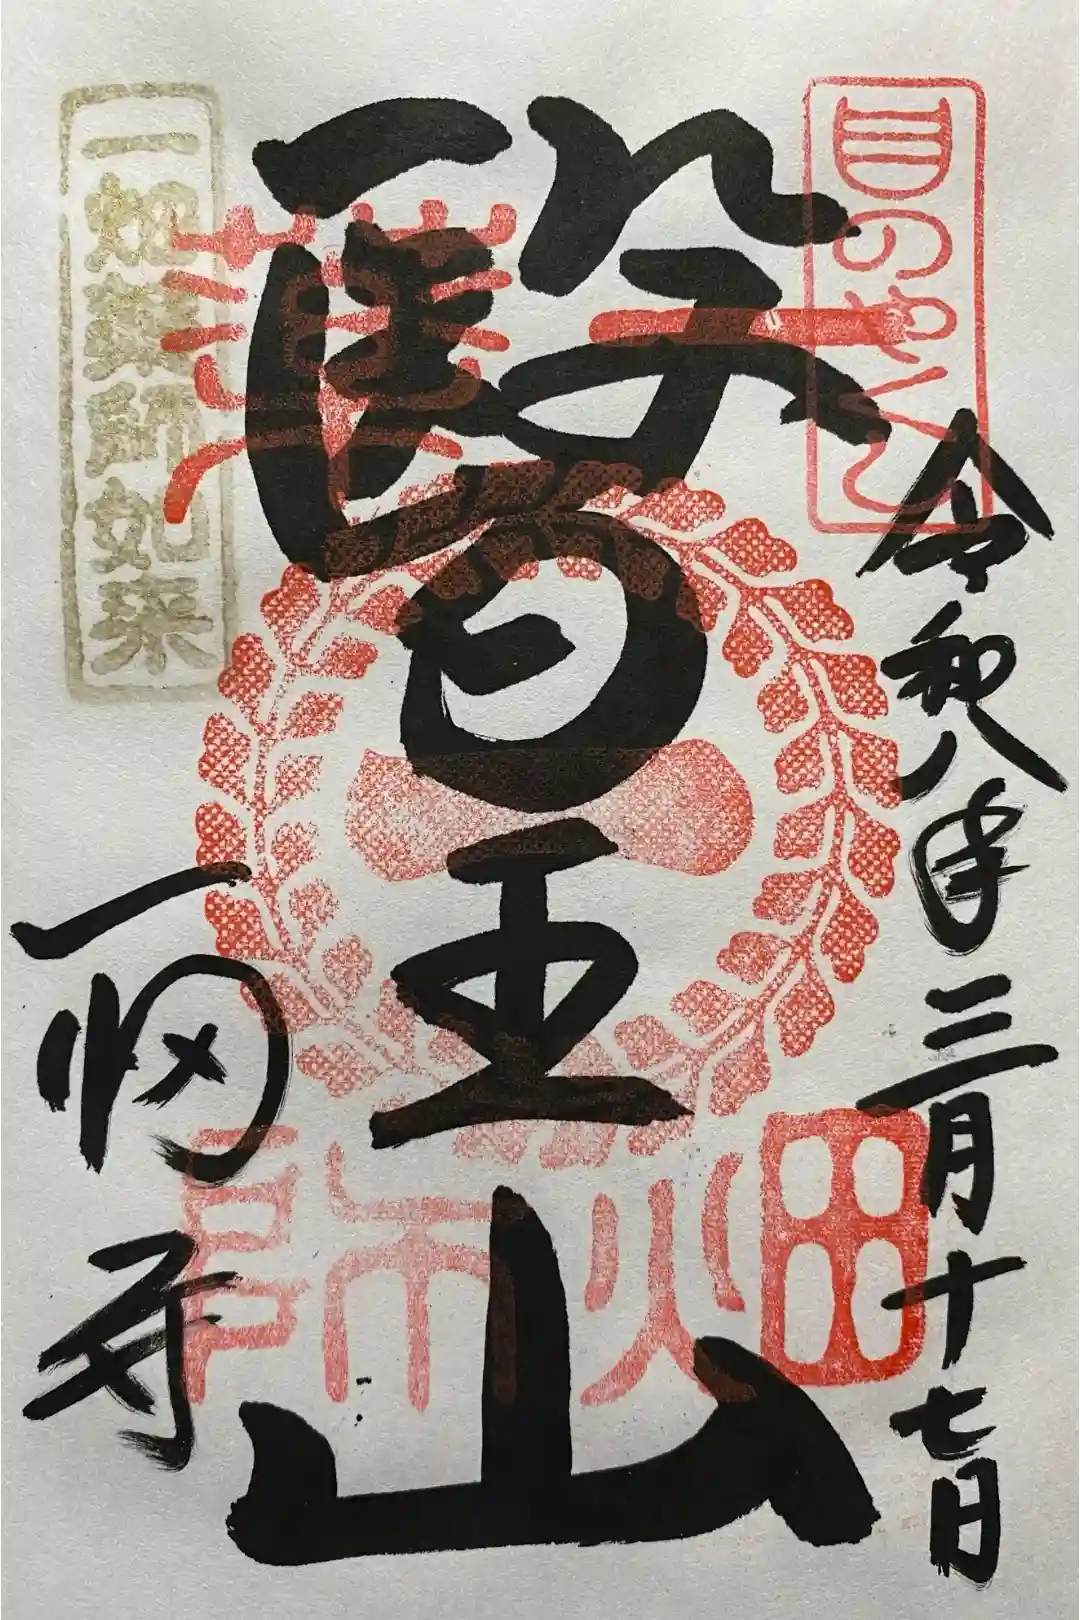 目のやくし
令和八年三月十七日
醫王山
一畑
薬師
一畑薬師如来
一畑寺